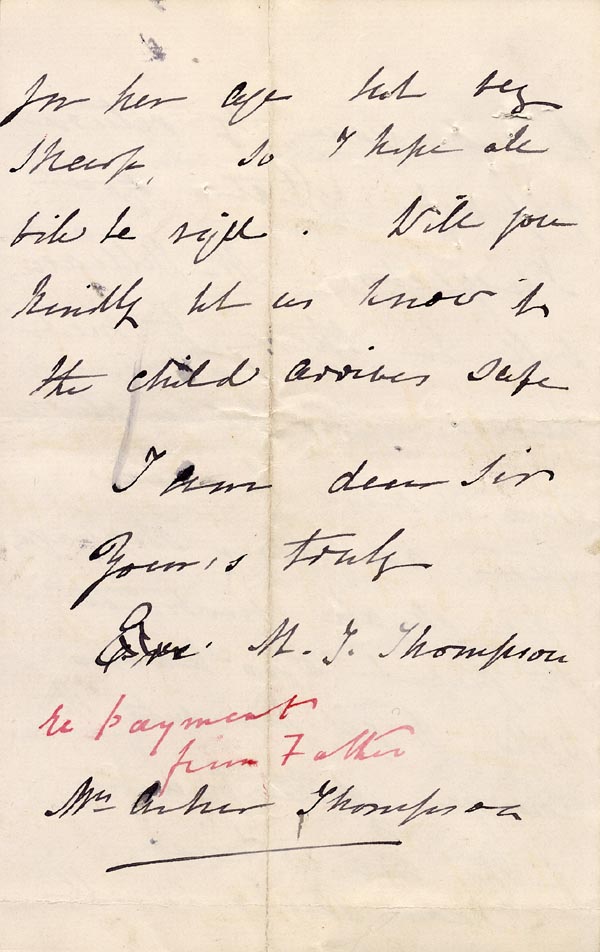 for her age but very
sharp, so I hope all
will be right. Will you
kindly let us know if
the child arrives safe
I am dear Sir
Yours truly
M. J. Thompson
re payment
from Father
Mrs Archer Thompson